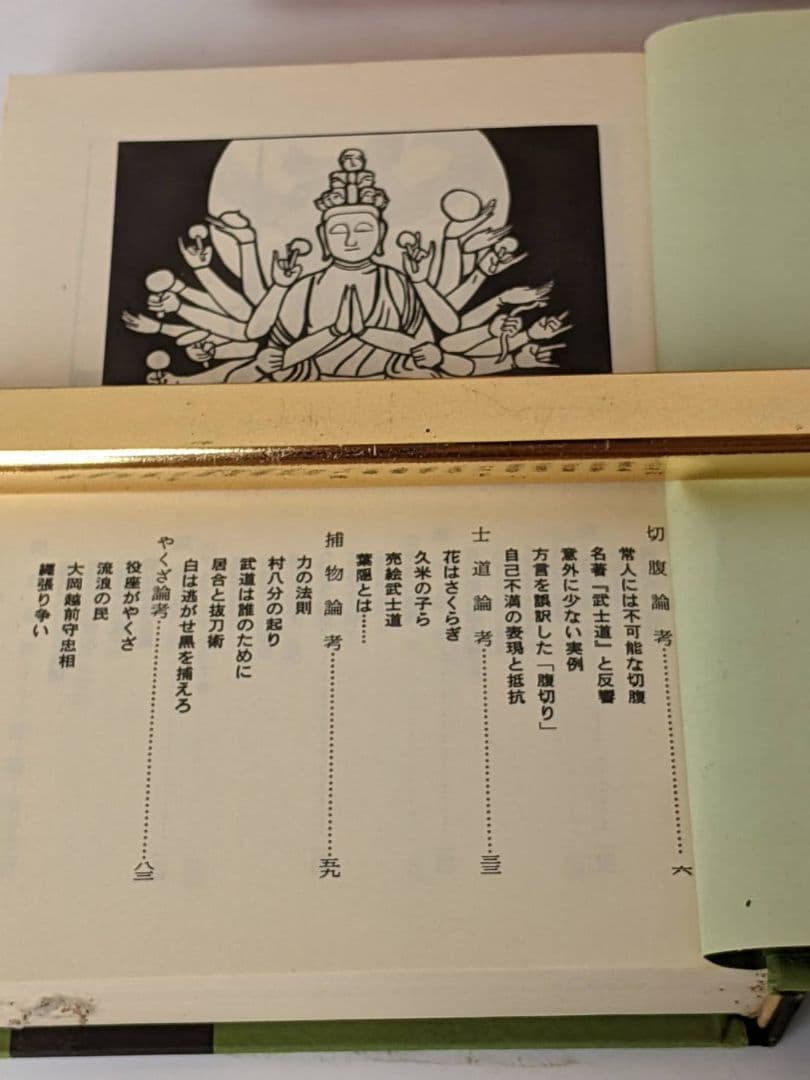 切腹論考……………六
常人には不可能な切腹
名著『武士道』と反響
意外に少ない実例
方言を誤訳した「腹切り」
自己不満の表現と抵抗
士道論考……………三三
花はさくらぎ
久米の子ら
売絵武士道
葉隠とは……
捕物論考……………五九
力の法則
村八分の起り
武道は誰のために
居合と抜刀術
白は逃がせ黒を捕えろ
やくざ論考……………八三
役座がやくざ
流浪の民
大岡越前守忠相
縄張り争い